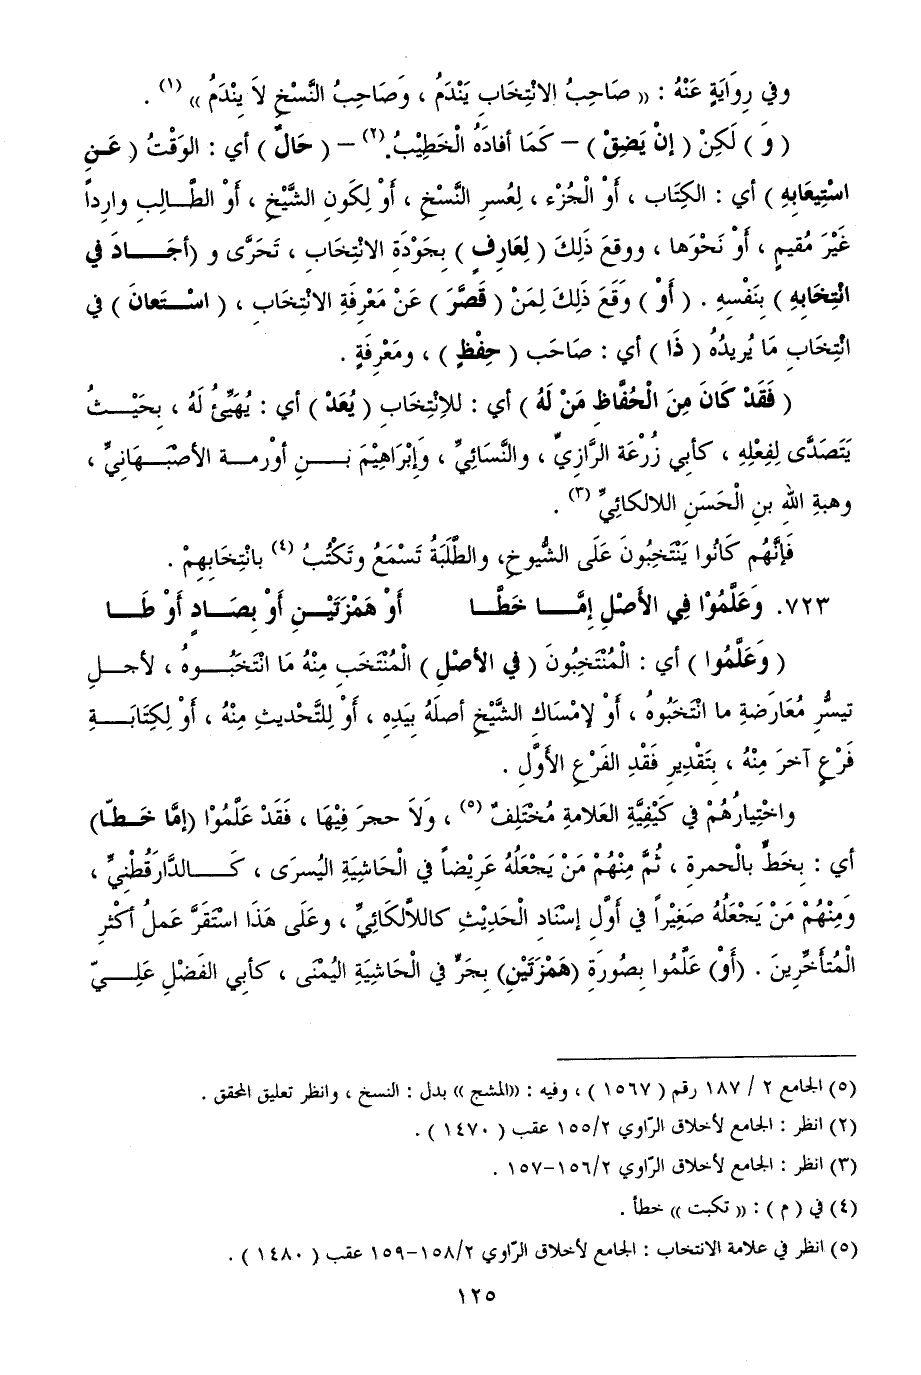 وفي رِوَايَةٍ عَنْهُ : « صَاحِبُ الانْتِخَابِ يَنْدَمُ ، وَصَاحِبُ النَّسْخِ لاَ يَنْدَمُ » (١) .
( وَ ) لَكِنْ ( إنْ يَضِقْ ) – كَمَا أفادَهُ الْخَطِيْبُ.(٢) – ( حَالٌ ) أي : الوَقْتُ ( عَنِ
اسْتِيعَابِهِ ) أي : الكِتَابِ ، أوْ الْجُزْءِ ، لِعُسرِ النَّسْخِ ، أوْ لِكَونِ الشَّيْخِ ، أوْ الطَّـالِبِ وارِداً
غَيْرَ مُقيمٍ ، أوْ نَحْوَها ، ووقعَ ذَلِكَ ( لِعَارِفٍ ) بِجَوْدَةِ الانْتِخَابِ ، تَحَرَّى و ( أجَـــادَ في
انْتِخَابِهِ ) بِنَفْسِهِ . ( أوْ ) وَقَعَ ذَلِكَ لِمَنْ ( قَصَّرَ ) عَنْ مَعْرِفَةِ الانْتِخَابِ ، ( اسْـتَعانَ ) في
انْتِخَابِ مَا يُريدُهُ ( ذَا ) أي : صَاحَب ( حِفْظٍ ) ، ومَعْرِفَةٍ .
( فَقَدْ كَانَ مِنَ الْحُفَّاظِ مَنْ لَهُ ) أي : للاِنْتِخَابِ ( يُعَدْ ) أي : يُهَيَّئُ لَهُ ، بِحَيْـــثُ
يَتَصَدَّى لِفِعْلِهِ ، كأبي زُرْعَةَ الرَّازِيِّ ، والنَّسَائِيِّ ، وَإِبْرَاهِيْمَ بـــنِ أورْمــة الأصْبَــهَانِيِّ ،
وهبةِ اللهِ بنِ الْحَسَنِ اللالكائِيِّ (٣) .
فَإنَّهُم كَانُوا يَنْتَخِبُونَ عَلَى الشُّيوخِ، والطَّلَبَةُ تَسْمَعُ وتَكْتُبُ (٤) بانْتِخَابِهِمْ .
٧٢٣. وَعَلَّمُوْا فِي الأَصْلِ إمَّـــا خَطَّــا أَوْ هَمْزَتَيْــنِ أَوْ بِصَــادٍ أَوْ طَــا
( وَعَلَّمُوا ) أي : الْمُنْتَخِبُونَ ( في الأصْلِ ) الْمُنْتَخَبِ مِنْهُ مَا انْتَخَبُــوهُ ، لأجـلِ
تيسُّرِ مُعَارَضةِ ما انْتَخَبُوهُ ، أوْ لإمْسَاكِ الشَّيْخِ أصلَهُ بيَدِهِ ، أوْ لِلتَّحْديثِ مِنْهُ ، أوْ لِكِتابَــةِ
فَرْعٍ آخرَ مِنْهُ ، بِتَقْديرِ فَقْدِ الفَرْعِ الأوَّلِ .
واخْتِيارُهُمْ في كَيْفِيَّةِ العَلامةِ مُخْتَلِفٌ (٥) ، وَلاَ حجرَ فِيْهَا ، فَقَدْ عَلَّمُوْا (إمَّا خَـطّا)
أي : بِخَطٍّ بالْحمرةِ ، ثُمَّ مِنْهُمْ مَنْ يَجْعَلُهُ عَرِيْضاً في الْحَاشِيَةِ اليُسرَى ، كَـــالدَّارَقُطْنِيِّ ،
وَمِنْهُمْ مَنْ يَجْعَلُهُ صَغِيْراً في أوَّلِ إسْنَادِ الْحَدِيْثِ كاللاَّلكَائِيِّ ، وعَلَى هَذَا اسْتَقَرَّ عَمَلُ أكْثرِ
الْمُتأخِّرِينَ . (أوْ) عَلَّمُوا بِصُورَةِ (هَمْزَتَيْنِ) بِجَرٍّ في الْحَاشِيَةِ اليُمْنَى ، كأبي الفَضْلِ عَلِـيّ
(٥) الجامع ٢ / ١٨٧ رقم ( ١٥٦٧ ) ، وفيه : «المشج » بدل : النسخ ، وانظر تعليق المحقق .
(٢) انظر : الجامع لأخلاق الرّاوي ١٥٥/٢ عقب ( ١٤٧٠ ) .
(٣) انظر : الجامع لأخلاق الرّاوي ١٥٦/٢–١٥٧ .
(٤) في ( م ) : « تكبت » خطأ .
(٥) انظر في علامة الانتخاب : الجامع لأخلاق الرّاوي ١٥٨/٢–١٥٩ عقب ( ١٤٨٠ ) .
١٢٥